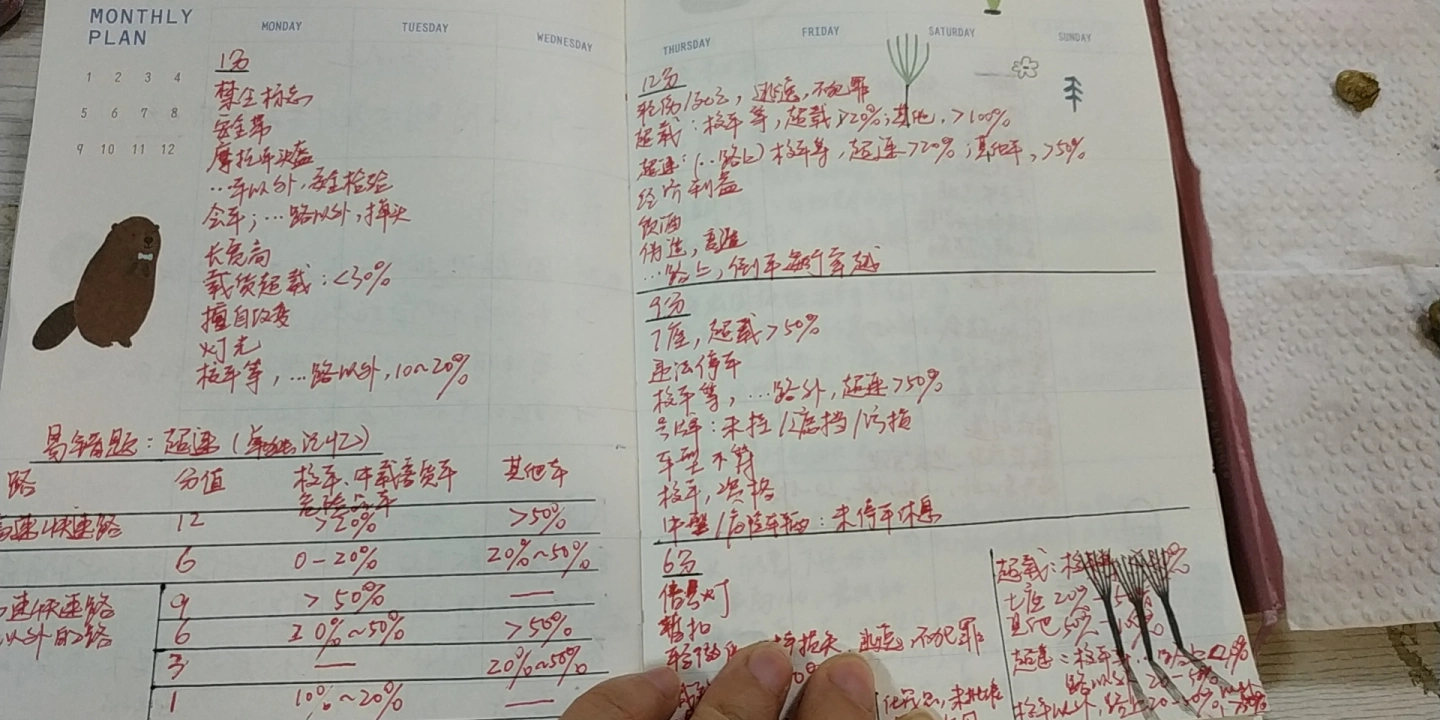 MONTHLY
PLAN
MONDAY
TUESDAY
WEDNESDAY
THURSDAY
FRIDAY
SATURDAY
SUNDAY
1 2 3 4
5 6 7 8
9 10 11 12
1分
禁令标志
安全带
摩托车头盔
…车以外,安全检验
会车;…路以外,掉头
长宽高
载货超载:<30%
擅自改变
灯光
校车等,…路以外,10~20%
易错题:超速(单独记忆)
路 分值 校车、中载客货车 危险品车 其他车
高速/快速路 12 >20% >50%
6 0-20% 20%~50%
速/快速路
以外的路
9 >50% —
6 20%~50% >50%
3 — 20%~50%
1 10%~20% —
12分
轻伤/死亡,逃逸,不犯罪
超载:校车等,超载>20%;其他,>100%
超速:(…路上)校车等,超速>20%;其他车,>50%
经济利益
饮酒
伪造,变造
…路上,倒车逆行穿越
9分
7座,超载>50%
违法停车
校车等,…路外,超速>50%
号牌:未挂/遮挡/污损
车型不符
校车,资格
中型/危险车辆:未停车休息
6分
信号灯
暂扣
轻微 损失、逃逸、不犯罪
超载:校 %
七座20%
其他50%
超速:校车
路以外 20-50%
校车以外,路上20-50%